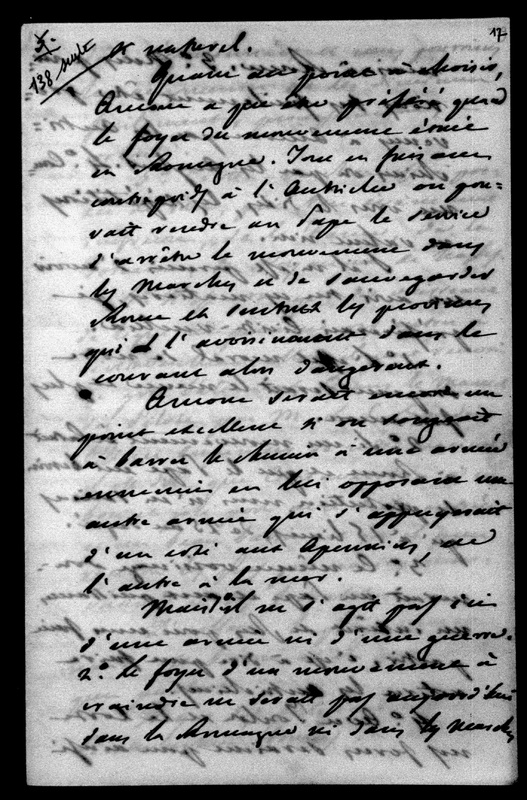 17
138 suite
et naturel.
Quant au point à choisir,
Ancone a pu être préféré quand
le foyer du mouvement était
en Romagne. Tout en faisant
contrepoids à l'Autriche on pou-
vait rendre au Pape le service
d'arrêter le mouvement dans
les Marches et de sauvegarder
Rome et surtout les provinces
qui l'avoisinaient dans le
courant alors dangereux.
Ancone serait encore un
point excellent si on songeait
à barrer le chemin à une armée
ennemie en lui opposant une
autre armée qui s'appuyerait
d'un côté aux Apennins, de
l'autre à la mer.
Mais 1° il ne s'agit pas ici
d'une armée ni d'une guerre.
2° le foyer d'un mouvement à
craindre ne serait pas aujourd'hui
dans la Romagne ni dans les Marches